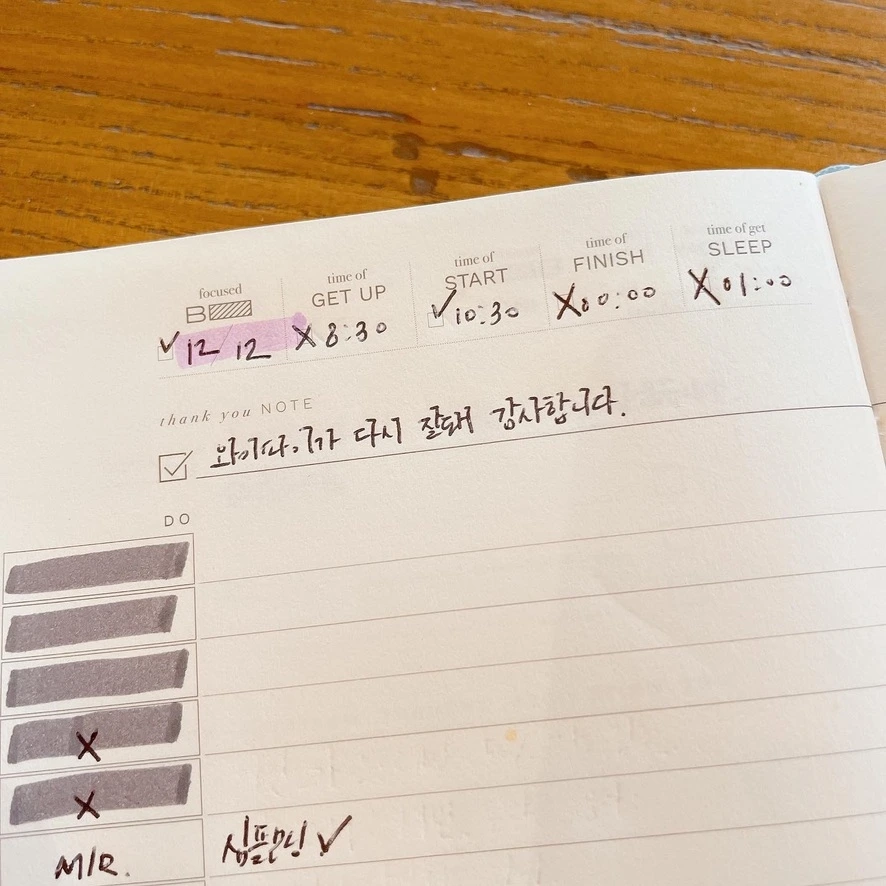 focused
time of
time of
time of
time of get
B
GET UP
START
FINISH
SLEEP
12/12
X 8:30
10:30
X 00:00
X 01:00
thank you NOTE
와이파이가 다시 잘돼 감사합니다.
DO
X
X
M/R. 심플모닝